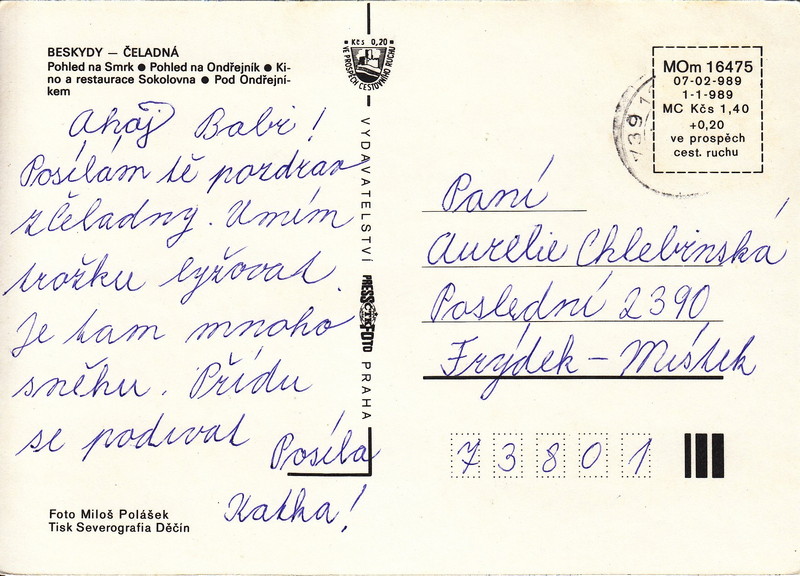 BESKYDY – ČELADNÁ
Pohled na Smrk ● Pohled na Ondřejník ● Ki-
no a restaurace Sokolovna ● Pod Ondřejní-
kem
Ahoj Babi!
Posílám tě pozdrav
z Čeladny. Umím
trožku lyžovat.
Je tam mnoho
sněhu. Přídu
se podívat
Posíla
Katka!
Foto Miloš Polášek
Tisk Severografia Děčín
Kčs 0,20
VE PROSPĚCH CESTOVNÍHO RUCHU
VYDAVATELSTVÍ
PRESSFOTO
ČTK
PRAHA
739 1
MOm 16475
07-02-989
1-1-989
MC Kčs 1,40
+0,20
ve prospěch
cest. ruchu
Paní
Aurelie Chlebinská
Poslední 2390
Frýdek – Místek
73801